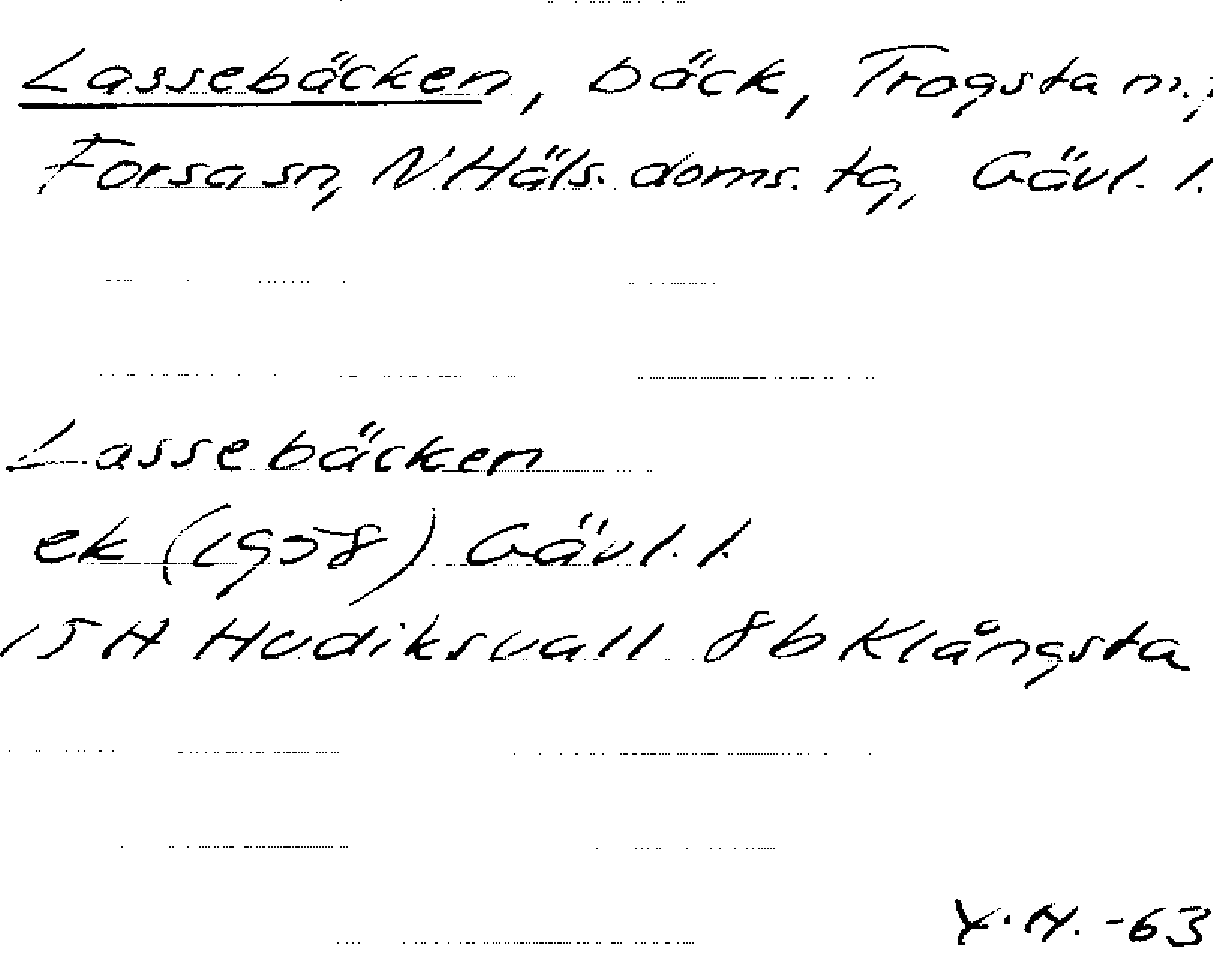 Lassebäcken, bäck, Trogsta m.,
Forsa sn, N Häls. doms. tg, Gävl. l.
Lassebäcken
ek (1958) Gävl. l.
15H Hudiksvall 8b Klångsta
Y.H. -63